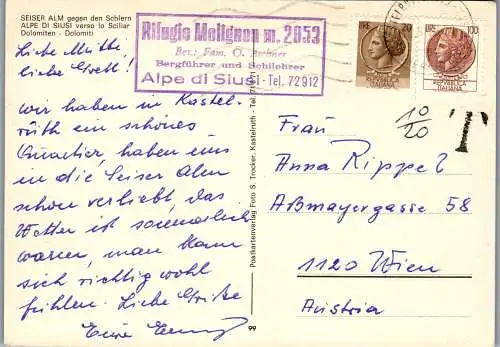 SEISER ALM gegen den Schlern
ALPE DI SIUSI verso lo Sciliar
Dolomiten - Dolomiti
Rifugio Molignon m. 2053
Bes.: Fam. O.
Bergführer und Schilehrer
Alpe di Siusi - Tel. 72912
LIRE 20
REPVBBLICA
ITALIANA
LIRE 100
REPVBBLICA
ITALIANA
Liebe Mutti,
liebe Gretl!
Wir haben in Kastel-
ruth ein schönes
Quartier, haben uns
in die Seiser Alm
schon verliebt, das
Wetter ist sommerlich
warm, man kann
sich richtig wohl
fühlen. Liebe Grüße
Eure
Postkartenverlag Foto S. Trocker, Kastelruth - Tel.
99
10/20
T
Frau
Anna Rippel
Aßmayergasse 58
1120 Wien
Austria